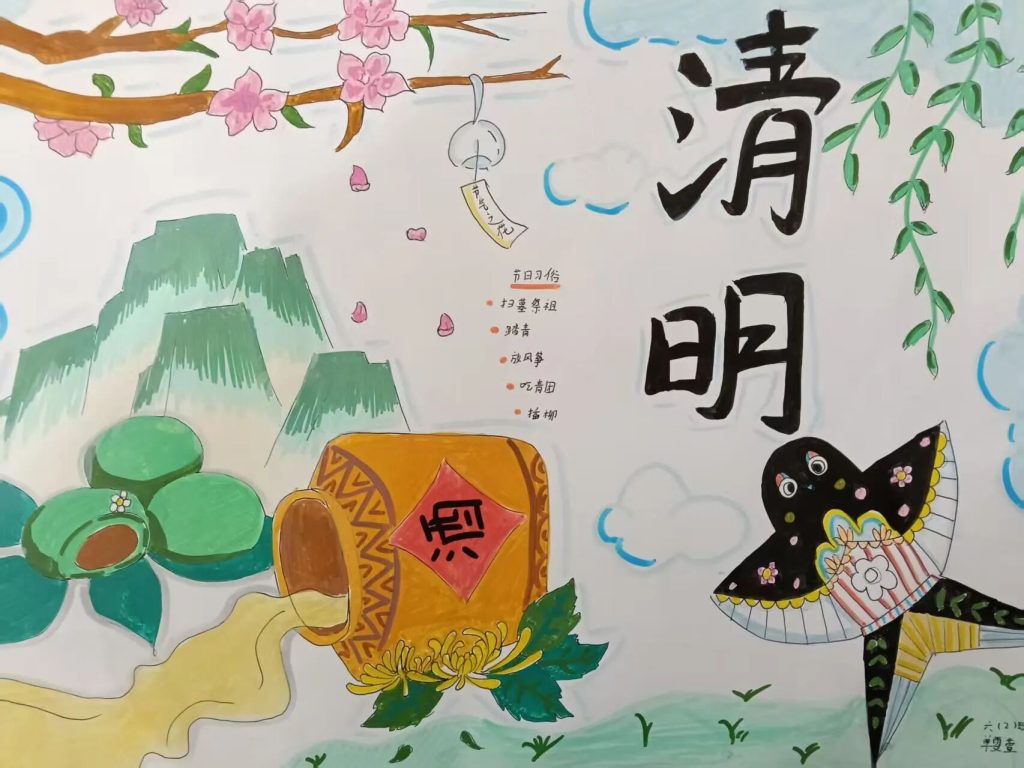 清明
节气之花
节日习俗
扫墓祭祖
踏青
放风筝
吃青团
插柳
酒
六(2)班